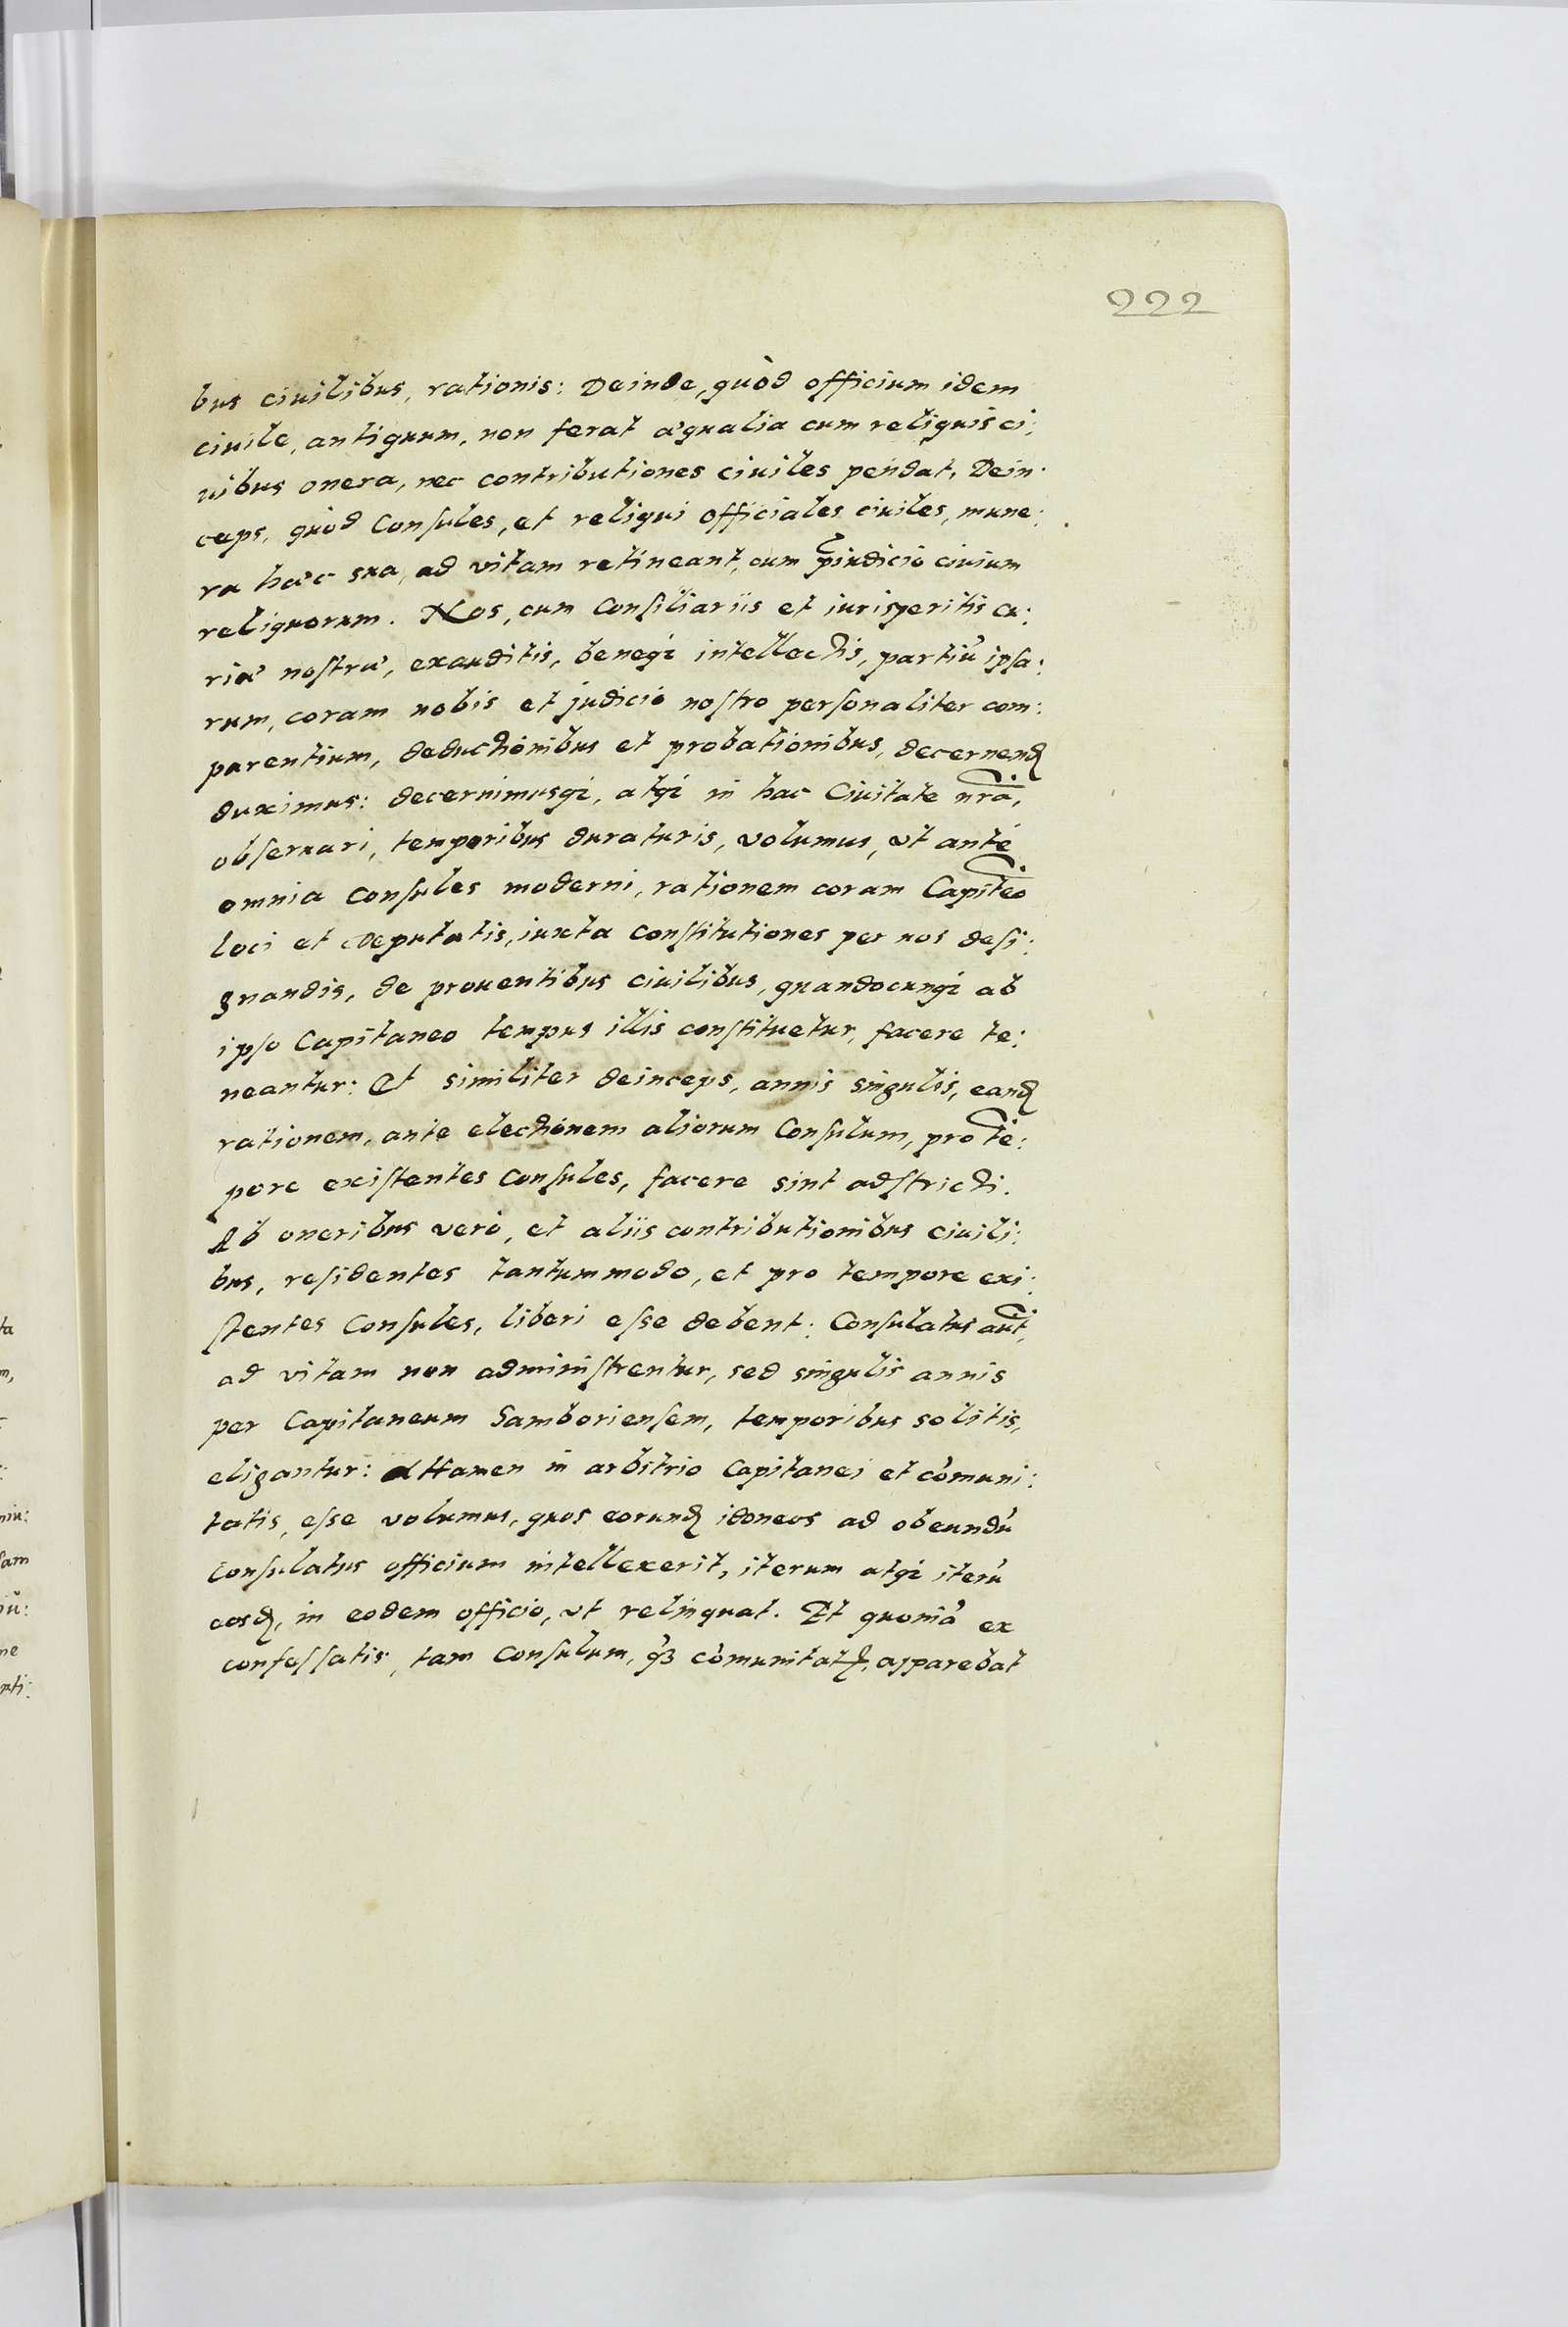 222
bus ciuilibus, rationis: Deinde, quòd officium idem
ciuile, antiquum, non ferat æqualia cum reliquis ci:
uibus onera, nec contributiones ciuiles pendat, Dein:
ceps, quòd Consules, et reliqui officiales ciuiles, mune:
ra hæc sua, ad vitam retineant, cum p̄iudicio ciuium
reliquorum. Nos, cum Consiliariis et iurisperitis cu:
riæ nostræ, exauditis, beneqꝫ intellectis, partiū ipsa:
rum, coram nobis et judicio nostro personaliter com:
parentium, deductionibus et probationibus, decernenꝺ
duximus: decernimusqꝫ, atqꝫ in hac Ciuitate nr̄a,
obseruari, temporibus duraturis, volumus, vt ante
omnia consules moderni, rationem coram Capiteō
loci et Deputatis, iuxta constitutiones per nos desi:
gnandis, de prouentibus ciuilibus, quandocunqꝫ ab
ipso Capitaneo tempus illis constituetur, facere te:
neantur: Et similiter deinceps, annis singulis, eanꝺ
rationem, ante electionem aliorum Consulum, pro tē:
pore existentes Consules, facere sint adstricti.
Ab oneribus verò, et aliis contributionibus ciuili:
bus, residentes tantummodo, et pro tempore exi:
stentes Consules, liberi esse debent: Consulatus aūt,
ad vitam non administrentur, sed singulis annis
per Capitaneum Samboriensem, temporibus solitis,
eligantur: attamen in arbitrio Capitanei et cōmuni:
tatis, esse volumus, quos eorunꝺ idoneos ad obeundū
Consulatus officium intellexerit, iterum atqꝫ iterū
eosꝺ, in eodem officio, vt relinquat. Et quoniā ex
confessatis, tam Consulum, q̄ꝫ cōmunitatꝭ, apparebat